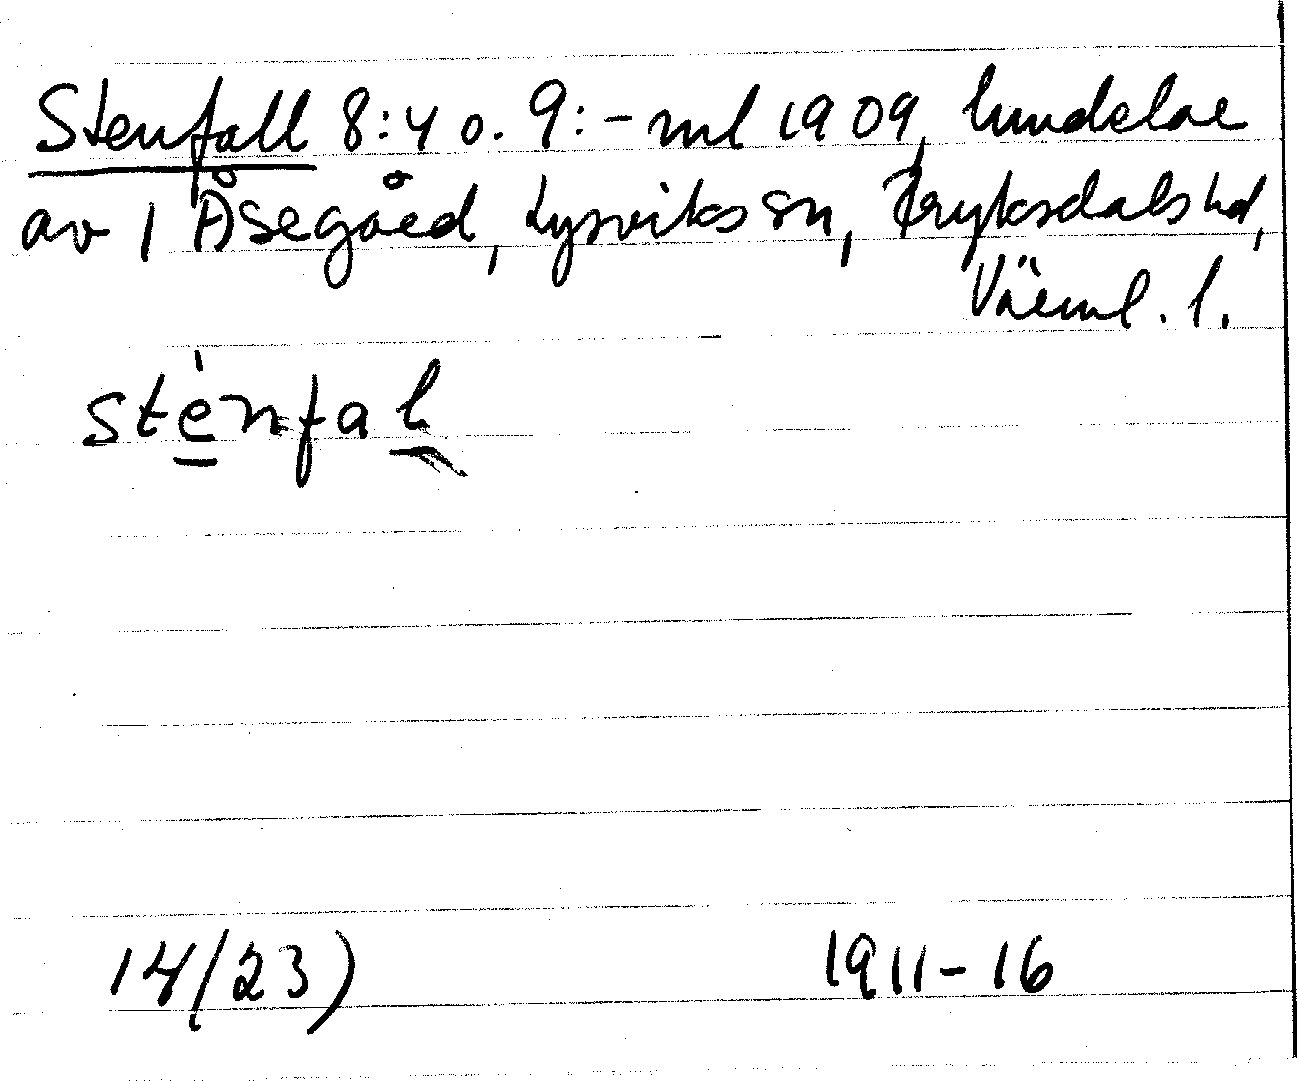 Stenfall 8:4 o. 9:- ml 1909, lundelar
av 1 Åsegård, Lysviks sn, Fryksdals hd,
Värml. l.
sténfaḷ
14/23) 1911-16